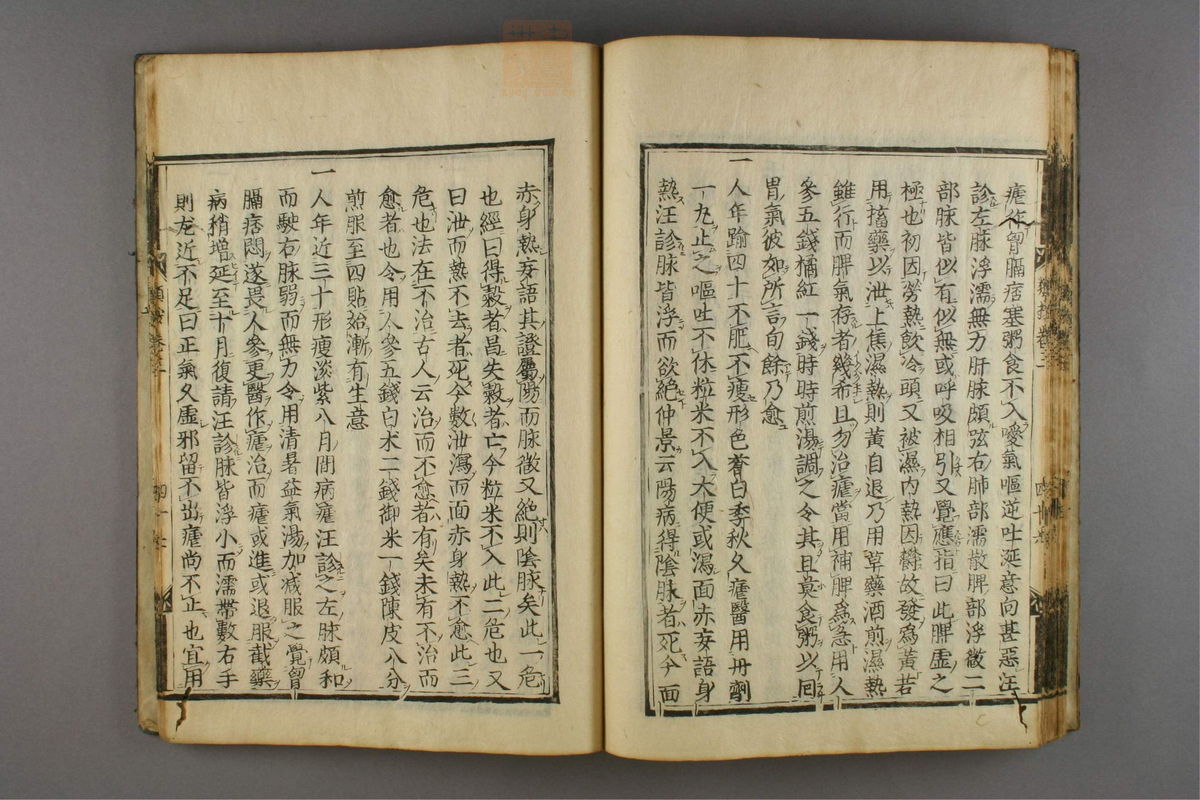 瘧作胷膈痞塞粥食不入噯氣嘔逆吐涎意向甚惡汪
診左脉浮濡無力肝脉頗弦右肺部濡散脾部浮微二
部脉皆似有似無或呼吸相引又覺應指曰此脾虛之
極也初因勞熱飲冷頭又被濕內熱因欝故發爲黃若
用搐藥以泄上焦濕熱則黃自退乃用草藥酒煎濕熱
雖行而脾氣存者幾希且勿治瘧當用補脾爲急用人
參五錢橘紅一錢時時煎湯調之令其且莫食粥以回
胃氣彼如所言旬餘乃愈
一人年踰四十不肥不瘦形色蒼白季秋久瘧醫用丹劑
一丸止之嘔吐不休粒米不入大便或瀉面赤妄語身
熱汪診脉皆浮而欲絕仲景云陽病得陰脉者死今面
赤身熱妄語其證屬陽而脉微又絕則陰脉矣此一危
也經曰得穀者昌失穀者亡今粒米不入此二危也又
曰泄而熱不去者死今數泄瀉而面赤身熱不愈此三
危也法在不治古人云治而不愈者有矣未有不治而
愈者也令用人參五錢白朮二錢御米一錢陳皮八分
煎服至四貼始漸有生意
一人年近三十形瘦淡紫八月間病瘧汪診之左脉頗和
而駛右脉弱而無力令用清暑益氣湯加減服之覺胷
膈痞悶遂畏人參更醫作瘧治而瘧或進或退服截藥
病稍增延至十月復請汪診脉皆浮小而濡帶數右手
則尤近不足曰正氣久虛邪留不出瘧尚不止也宜用